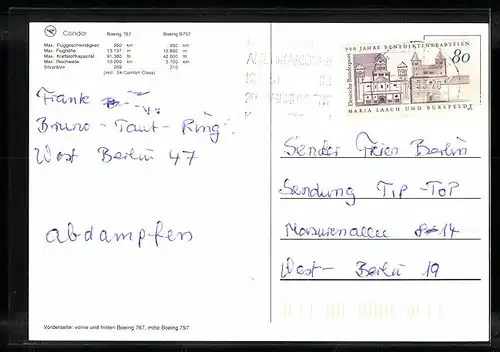 Condor Boeing 767 Boeing B757
Max. Fluggeschwindigkeit 950 km 950 km
Max. Flughöhe 13.137 m 12.800 m
Max. Kraftstoffkapazität 91.380 ltr 42.600 ltr
Max. Reichweite 10.200 km 5.700 km
Sitzplätze 269 210
(incl. 24 Comfort Class)
900 JAHRE BENEDIKTINERABTEIEN
Deutsche Bundespost
80
MARIA LAACH UND BURSFELDE
Frank
Bruno-Taut-Ring
West Berlin 47
abdampfen
Sender Freies Berlin
Sendung TIP-TOP
Masurenallee 8-14
West-Berlin 19
Vorderseite: vorne und hinten Boeing 767, mitte Boeing 757